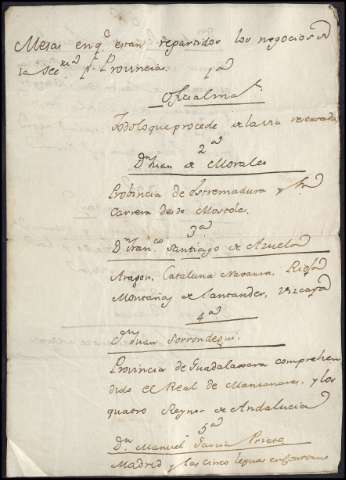 Mesas en q.e estan repartidos los negocios de
la Sec.ria p.r Provincias.
1.a
Oficial m.or
Todo lo que procede de la via reservada
2.a
D.n Juan de Morales
Provincia de Estremadura y
Carrera desde Mostoles.
3.a
D.n Fran.co Santiago de Azuela
Aragon, Cataluña Navarra, Rioja
Montañas de Santander, Vizcaya
4.a
D.n Juan Sorrondegui.
Provincia de Guadalaxara comprehen
dido el Real de Manzanares, y los
quatro Reynos de Andalucia
5.a
D.n Manuel Garcia Prieto
Madrid y las cinco leguas en contorno